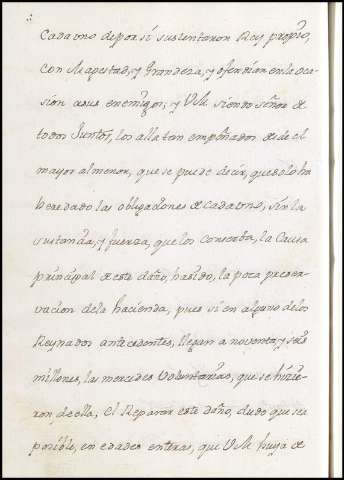 Cada uno de por si sustentaron Rey proprio,
con Magestad, y Grandeza, y ofendian en la oca
sion a sus enemigos, y VM siendo señor de
todos Juntos, los alla tan empeñados desde el
mayor al menor, que se puede decir, que solo ha
heredado las obligaciones de cada uno, sin la
sustancia, y fuerza, que los conserba, la Causa
principal de este daño, ha sido, la poca preser-
vacion de la hacienda, pues si en alguno de los
Reynados antecedentes, llegan a noventa y seis
millones, las mercedes voluntarias, que se hizie-
ron de ella, el Reparar este daño, dudo que sea
posible, en edades enteras, que VM huya de